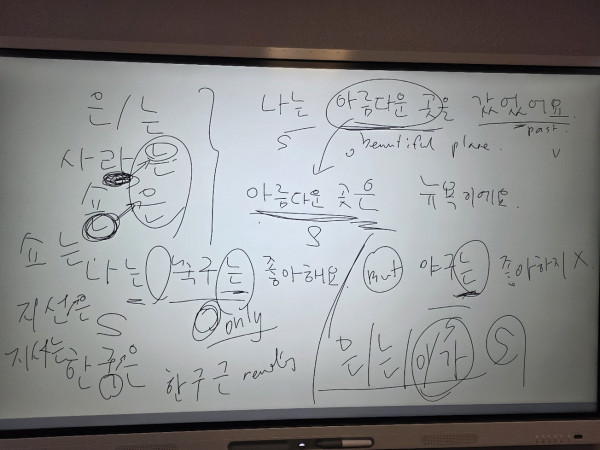 은/는
사라는
은
쇼는
지선은
지서는
나는 아름다운 곳은 갔었어요.
S past. v
beautiful place.
아름다운 곳은 뉴욕이에요.
S
나는 축구는 좋아해요 but 야구는 좋아하지 X
S only
한국은
은/는/이가 S